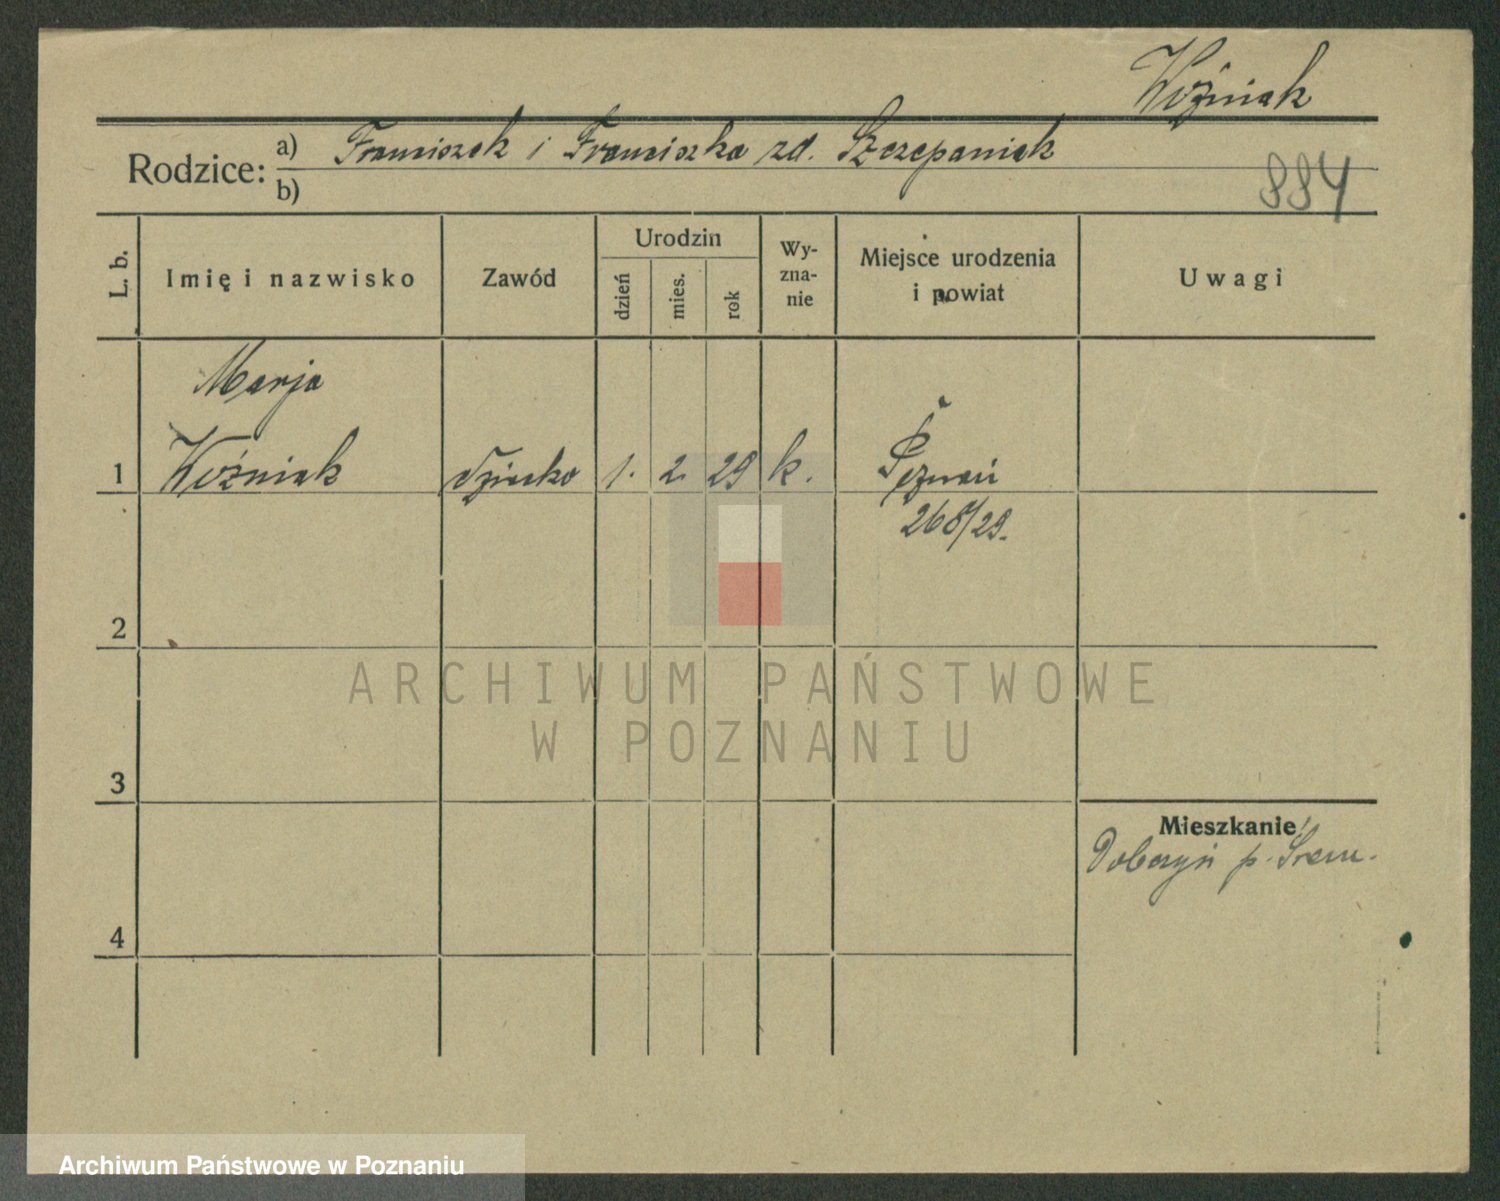 Woźniak
Rodzice: a) Franciszek i Franciszka zd. Szczepaniak
b)
884
L. b.
Imię i nazwisko
Zawód
Urodzin
dzień
mies.
rok
Wy-
zna-
nie
Miejsce urodzenia
i powiat
Uwagi
Marja
1 Woźniak dziecko 1. 2. 29 k. Poznań
268/29.
2
ARCHIWUM PAŃSTWOWE
W POZNANIU
3
Mieszkanie
Dobczyn p. Śrem.
4
Archiwum Państwowe w Poznaniu